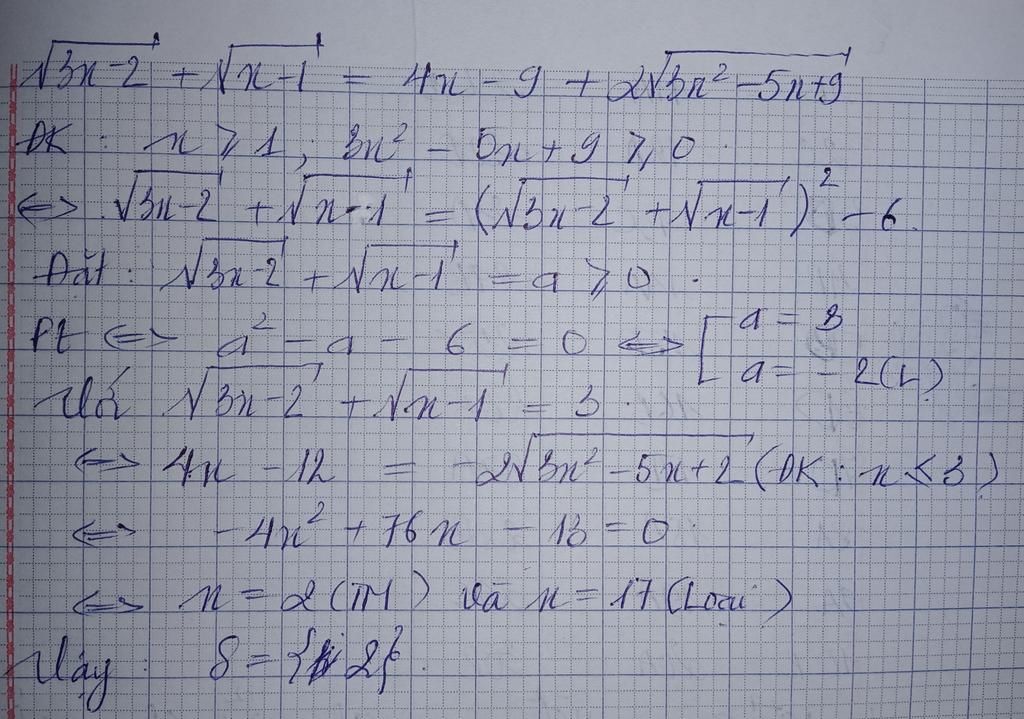 √(3x-2) + √(x-1) = 4x - 9 + 2√(3x² - 5x + 9)
ĐK : x ≥ 1 ; 3x² - 5x + 9 ≥ 0.
<=> √(3x-2) + √(x-1) = (√(3x-2) + √(x-1))² - 6.
Đặt : √(3x-2) + √(x-1) = a ≥ 0.
Pt <=> a² - a - 6 = 0 <=> [ a = 3
a = -2 (L)
Với √(3x-2) + √(x-1) = 3.
<=> 4x - 12 = -2√(3x² - 5x + 2) (ĐK : x ≤ 3)
<=> -4x² + 76x - 13 = 0
<=> x = 2 (TM) và x = 17 (Loại)
Vậy : S = {2}.